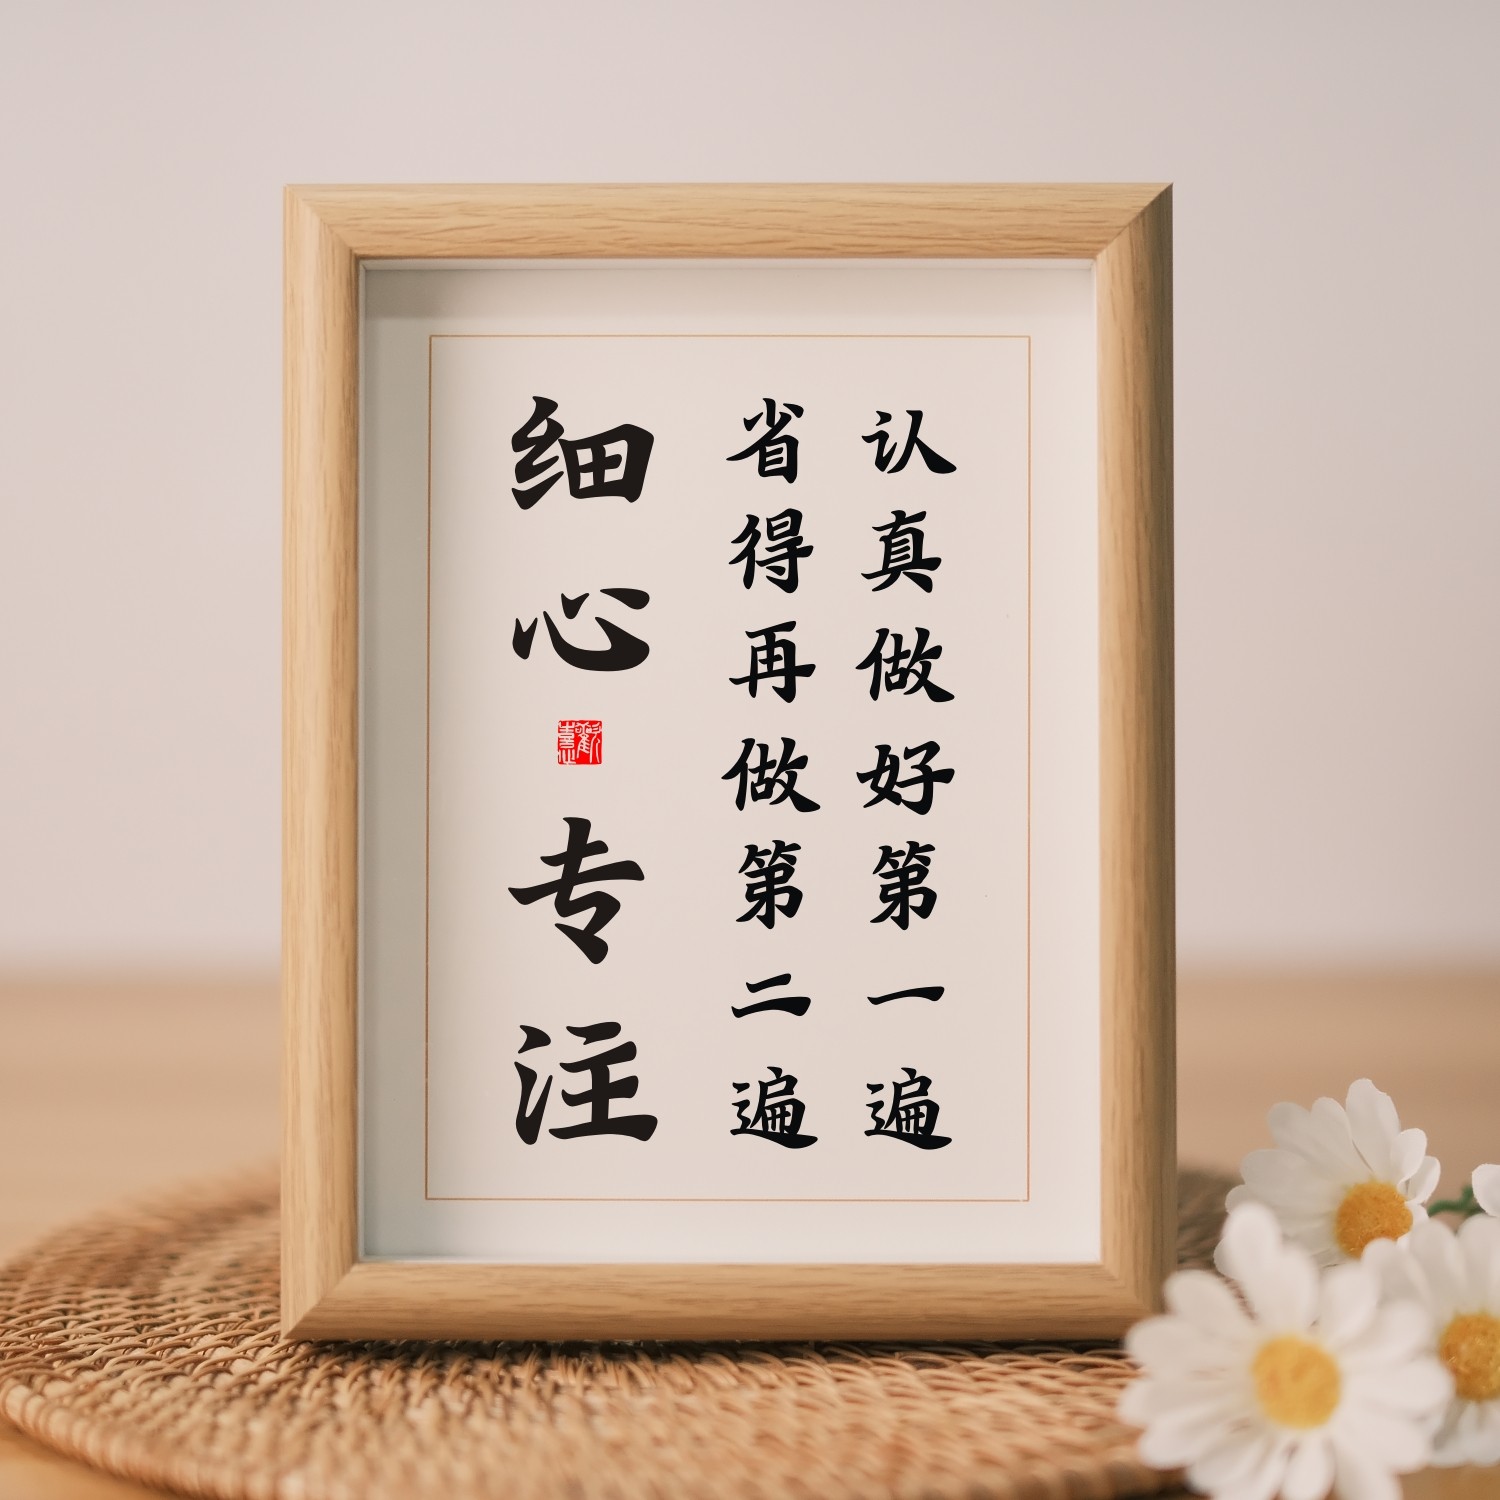 认真做好第一遍
省得再做第二遍
细心专注